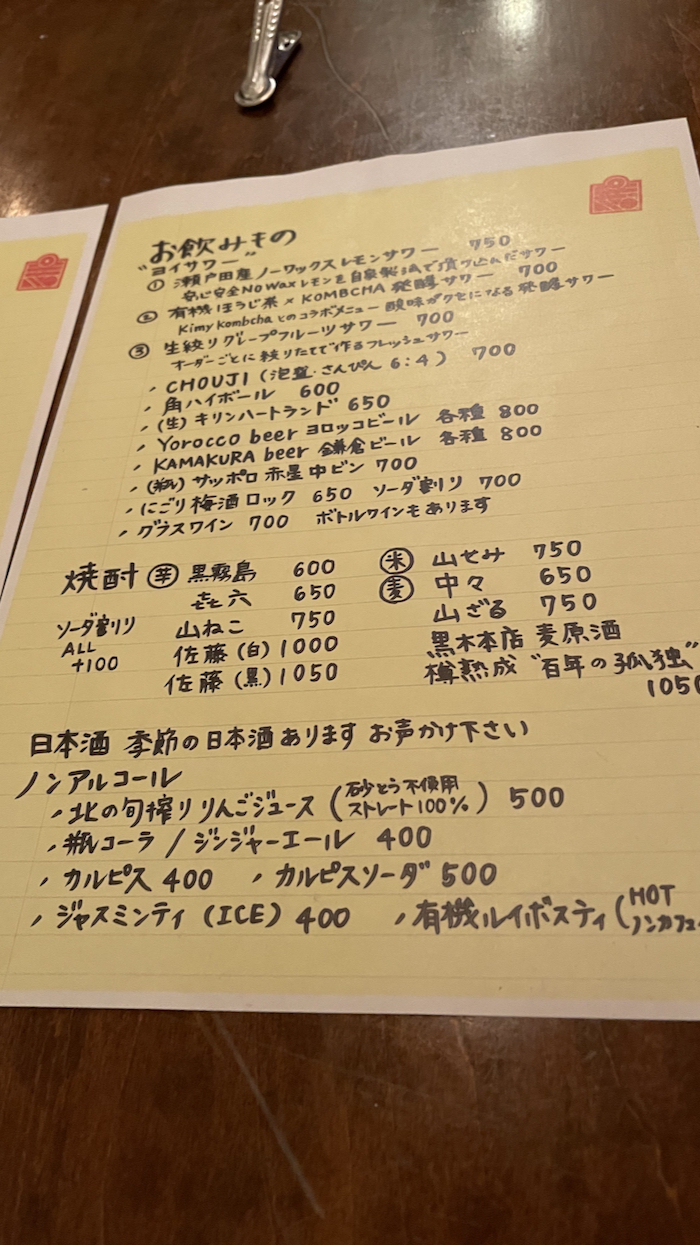 お飲みもの
"ヨイサワー"
① 瀬戸田産 ノーワックスレモンサワー 750
安心安全NoWaxレモンを自家製法で漬け込んだサワー
② 有機ほうじ茶×KOMBCHA発酵サワー 700
Kimy Kombchaとのコラボメニュー 酸味がクセになる発酵サワー
③ 生絞りグレープフルーツサワー 700
オーダーごとに絞りたてで作るフレッシュサワー
、CHOUJI (泡盛・さんぴん 6:4) 700
、角ハイボール 600
、(生) キリンハートランド 650
、Yorocco beer ヨロッコビール 各種 800
、KAMAKURA beer 鎌倉ビール 各種 800
、(瓶) サッポロ 赤星 中ビン 700
、にごり梅酒 ロック 650 ソーダ割り 700
、グラスワイン 700 ボトルワインもあります
焼酎 芋 黒霧島 600
㐂六 650
ソーダ割り 山ねこ 750
ALL 佐藤 (白) 1000
+100 佐藤 (黒) 1050
米 山せみ 750
麦 中々 650
山ざる 750
黒木本店 麦原酒
樽熟成 "百年の孤独"
1050
日本酒 季節の日本酒あります お声かけ下さい
ノンアルコール
、北の旬搾り りんごジュース (砂とう不使用 ストレート100%) 500
、瓶コーラ / ジンジャーエール 400
、カルピス 400 、カルピスソーダ 500
、ジャスミンティ (ICE) 400 、有機ルイボスティ (HOT ノンカフェ